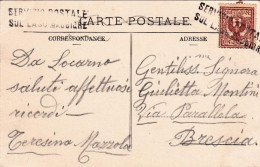 SERVIZIO POSTALE
SUL LAGO MAGGIORE
CARTE POSTALE.
SERVIZIO POSTALE
SUL LAGO MAGGIORE
CORRESPONDANCE.
ADRESSE
Da Locarno
saluti affettuosi
ricordi -
Teresina Mazzola
Gentiliss. Signora
Giulietta Montini
Via Parallela
Brescia